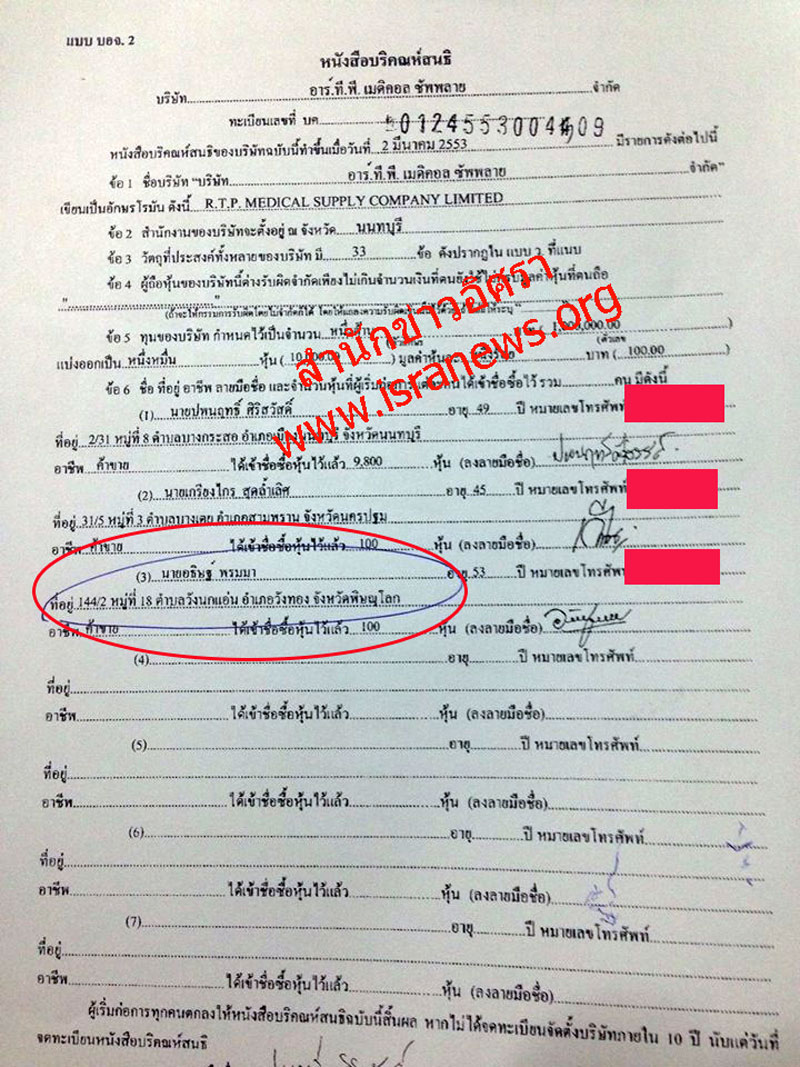 แบบ บอจ. 2
หนังสือบริคณห์สนธิ
บริษัท อาร์.ที.พี. เมดิคอล ซัพพลาย จำกัด
ทะเบียนเลขที่ บค.
หนังสือบริคณห์สนธิของบริษัทฉบับนี้ทำขึ้นเมื่อวันที่ 2 มีนาคม 2553 มีรายการดังต่อไปนี้
ข้อ 1 ชื่อบริษัท "บริษัท อาร์.ที.พี. เมดิคอล ซัพพลาย จำกัด"
เขียนเป็นอักษรโรมัน ดังนี้ R.T.P. MEDICAL SUPPLY COMPANY LIMITED
ข้อ 2 สำนักงานของบริษัทจะตั้งอยู่ ณ จังหวัด นนทบุรี
ข้อ 3 วัตถุที่ประสงค์ทั้งหลายของบริษัท มี 33 ข้อ ดังปรากฏใน แบบ ว. ที่แนบ
ข้อ 4 ผู้ถือหุ้นของบริษัทนี้ต่างรับผิดจำกัดเพียงไม่เกินจำนวนเงินที่ตนยังใช้ไม่ครบมูลค่าหุ้นที่ตนถือ
(ถ้าจะให้กรรมการรับผิดโดยไม่จำกัดก็ได้ โดยให้แถลงความรับผิด
ข้อ 5 ทุนของบริษัท กำหนดไว้เป็นจำนวน หนึ่งล้าน ( 1,000,000.00 )
(ตัวเลข
แบ่งออกเป็น หนึ่งหมื่น หุ้น ( 10,000 ) มูลค่าหุ้นละ หนึ่งร้อย บาท ( 100.00 )
ข้อ 6 ชื่อ ที่อยู่ อาชีพ ลายมือชื่อ และจำนวนหุ้นที่ผู้เริ่มก่อการแต่ละคนได้เข้าชื่อซื้อไว้ รวม คน มีดังนี้
(1) นายปพนฤทธิ์ ศิริสวัสดิ์ อายุ 49 ปี หมายเลขโทรศัพท์
ที่อยู่ 2/31 หมู่ที่ 8 ตำบลบางกระสอ อำเภอเมืองนนทบุรี จังหวัดนนทบุรี
อาชีพ ค้าขาย ได้เข้าชื่อซื้อหุ้นไว้แล้ว 9,800 หุ้น (ลงลายมือชื่อ)
(2) นายเกรียงไกร สุดล้ำเลิศ อายุ 45 ปี หมายเลขโทรศัพท์
ที่อยู่ 31/5 หมู่ที่ 3 ตำบลบางเตย อำเภอสามพราน จังหวัดนครปฐม
อาชีพ ค้าขาย ได้เข้าชื่อซื้อหุ้นไว้แล้ว 100 หุ้น (ลงลายมือชื่อ)
(3) นายอธิษฐ์ พรมมา อายุ 53 ปี หมายเลขโทรศัพท์
ที่อยู่ 144/2 หมู่ที่ 18 ตำบลวังนกแอ่น อำเภอวังทอง จังหวัดพิษณุโลก
อาชีพ ค้าขาย ได้เข้าชื่อซื้อหุ้นไว้แล้ว 100 หุ้น (ลงลายมือชื่อ)
(4) อายุ ปี หมายเลขโทรศัพท์
ที่อยู่
อาชีพ ได้เข้าชื่อซื้อหุ้นไว้แล้ว หุ้น (ลงลายมือชื่อ)
(5) อายุ ปี หมายเลขโทรศัพท์
ที่อยู่
อาชีพ ได้เข้าชื่อซื้อหุ้นไว้แล้ว หุ้น (ลงลายมือชื่อ)
(6) อายุ ปี หมายเลขโทรศัพท์
ที่อยู่
อาชีพ ได้เข้าชื่อซื้อหุ้นไว้แล้ว หุ้น (ลงลายมือชื่อ)
(7) อายุ ปี หมายเลขโทรศัพท์
ที่อยู่
อาชีพ ได้เข้าชื่อซื้อหุ้นไว้แล้ว หุ้น (ลงลายมือชื่อ)
ผู้เริ่มก่อการทุกคนตกลงให้หนังสือบริคณห์สนธิฉบับนี้สิ้นผล หากไม่ได้จดทะเบียนจัดตั้งบริษัทภายใน 10 ปี นับแต่วันที่
จดทะเบียนหนังสือบริคณห์สนธิ
สำนักข่าวอิศรา
www.isranews.org